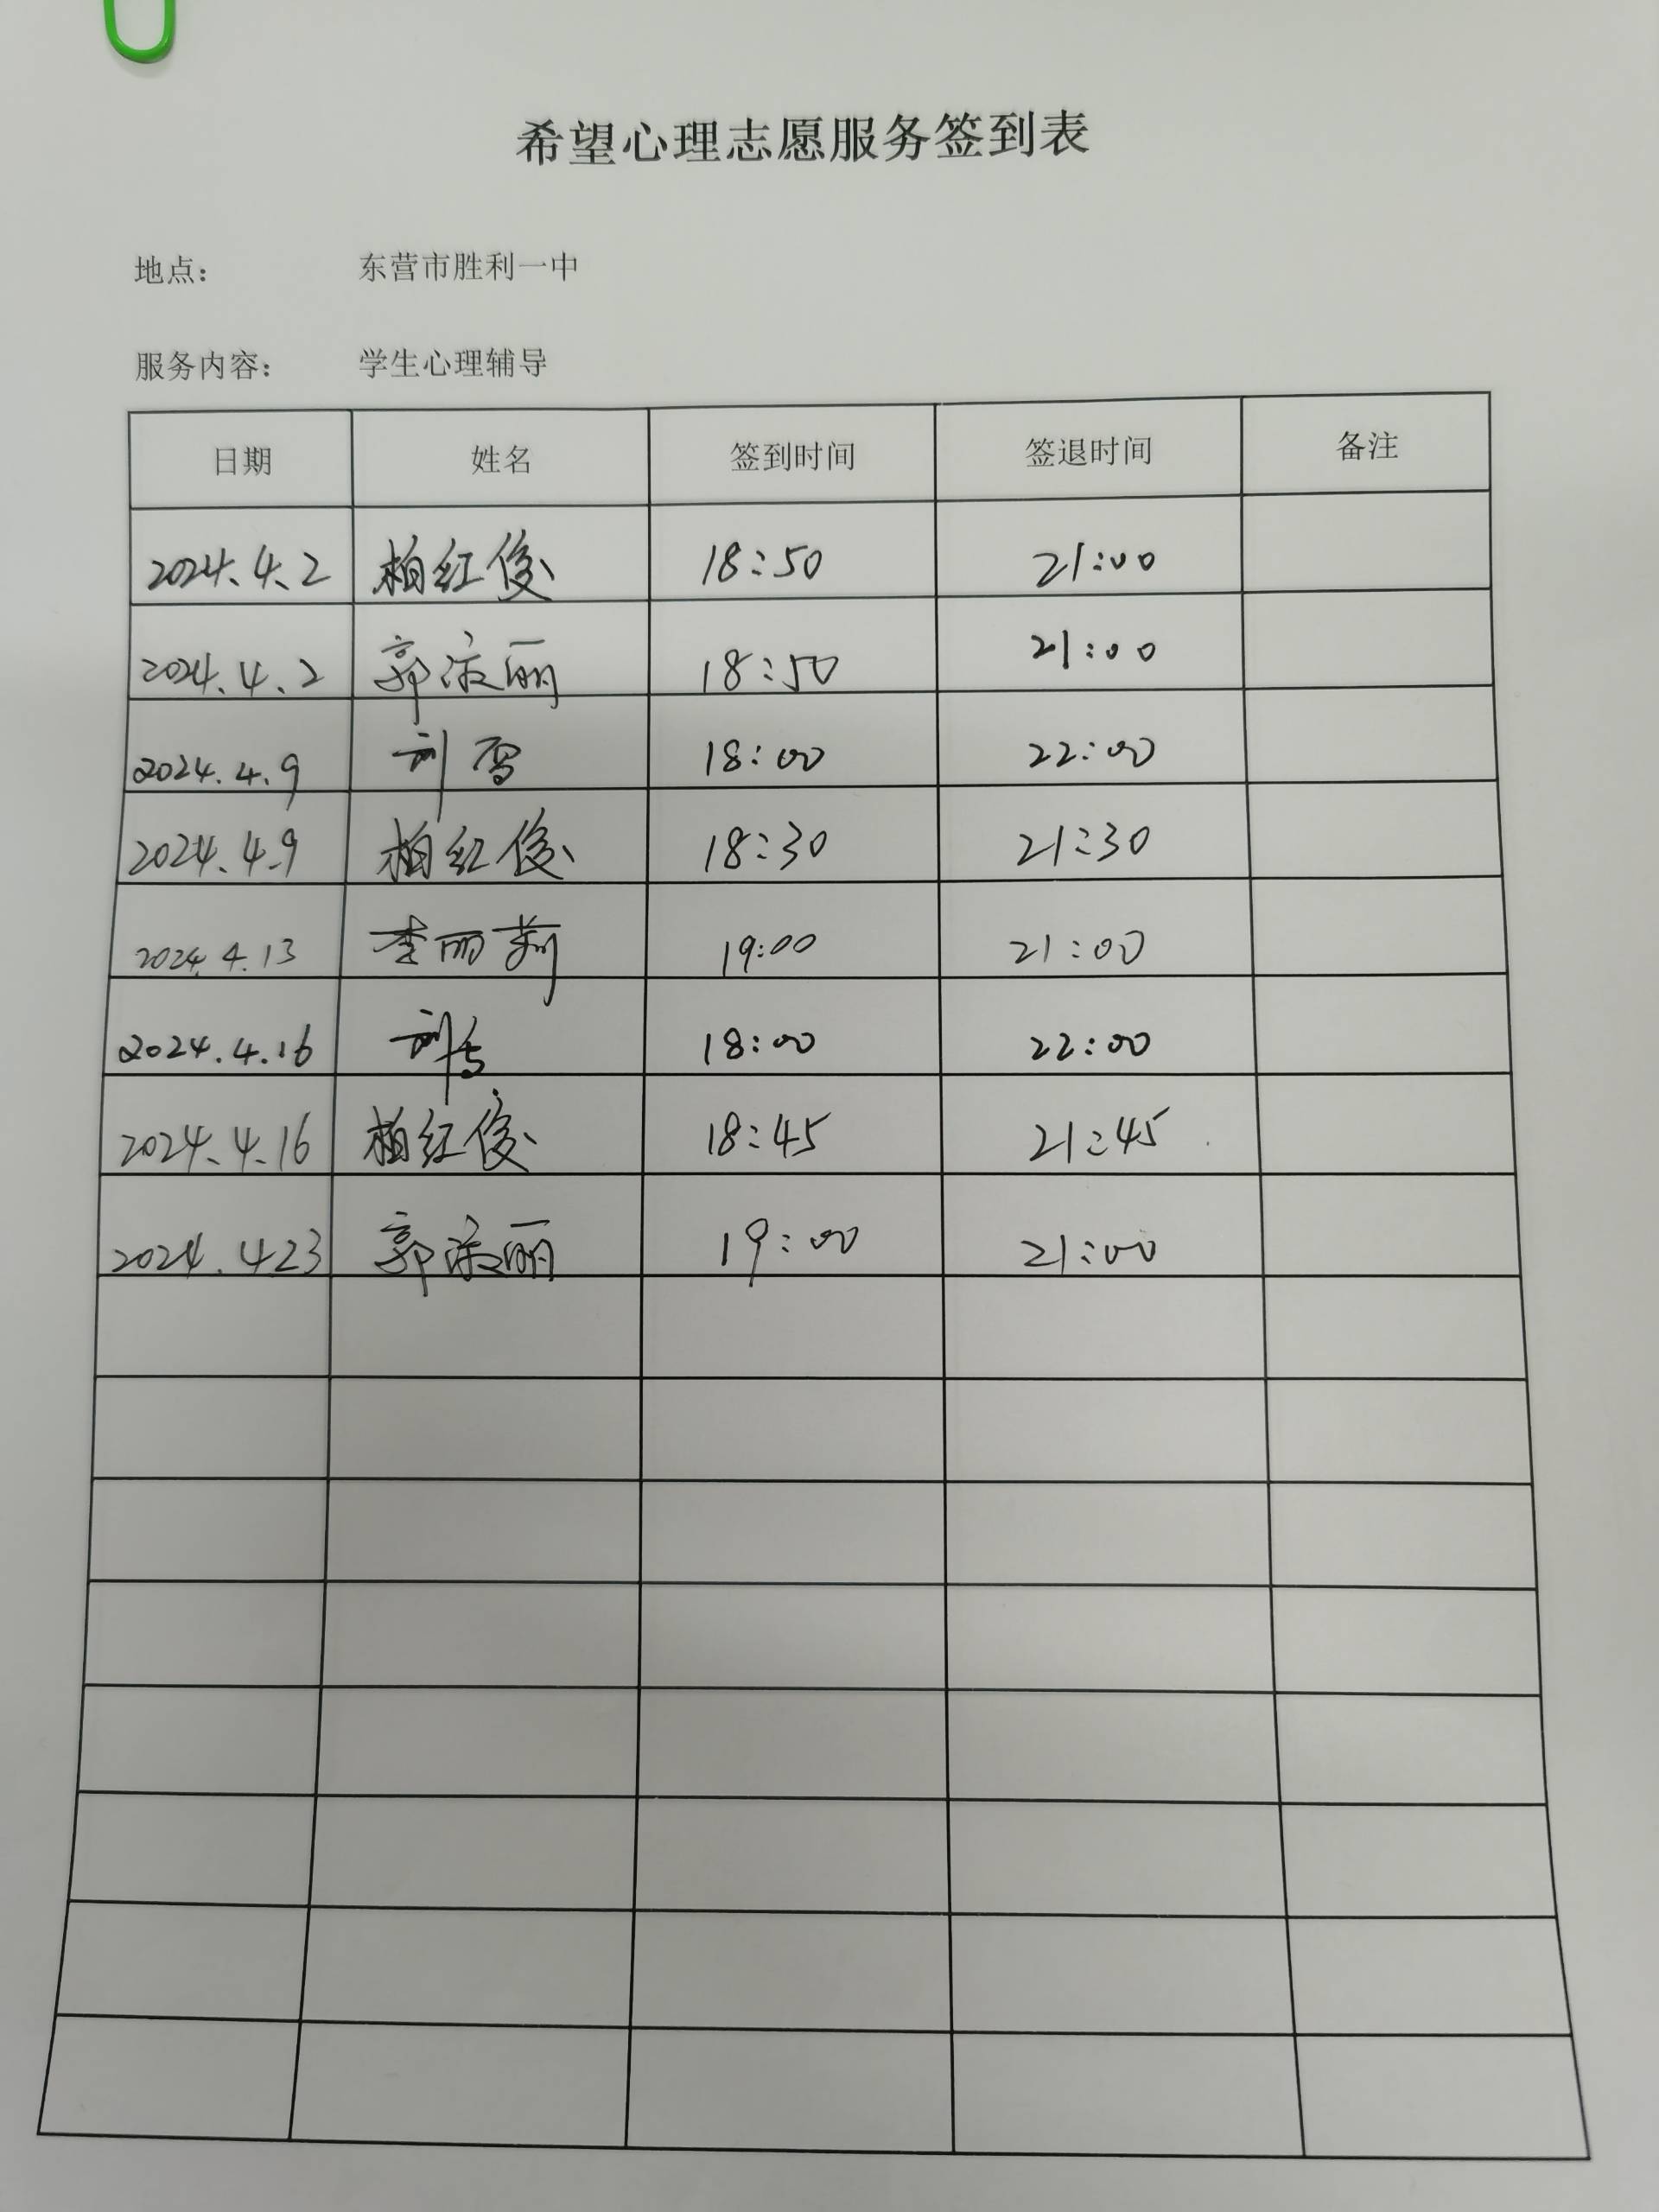 希望心理志愿服务签到表
地点： 东营市胜利一中
服务内容： 学生心理辅导
日期 姓名 签到时间 签退时间 备注
2024.4.2 柏红俊 18:50 21:00
2024.4.2 郭淑丽 18:50 21:00
2024.4.9 刘雪 18:00 22:00
2024.4.9 柏红俊 18:30 21:30
2024.4.13 李丽莉 19:00 21:00
2024.4.16 刘雪 18:00 22:00
2024.4.16 柏红俊 18:45 21:45
2024.4.23 郭淑丽 19:00 21:00